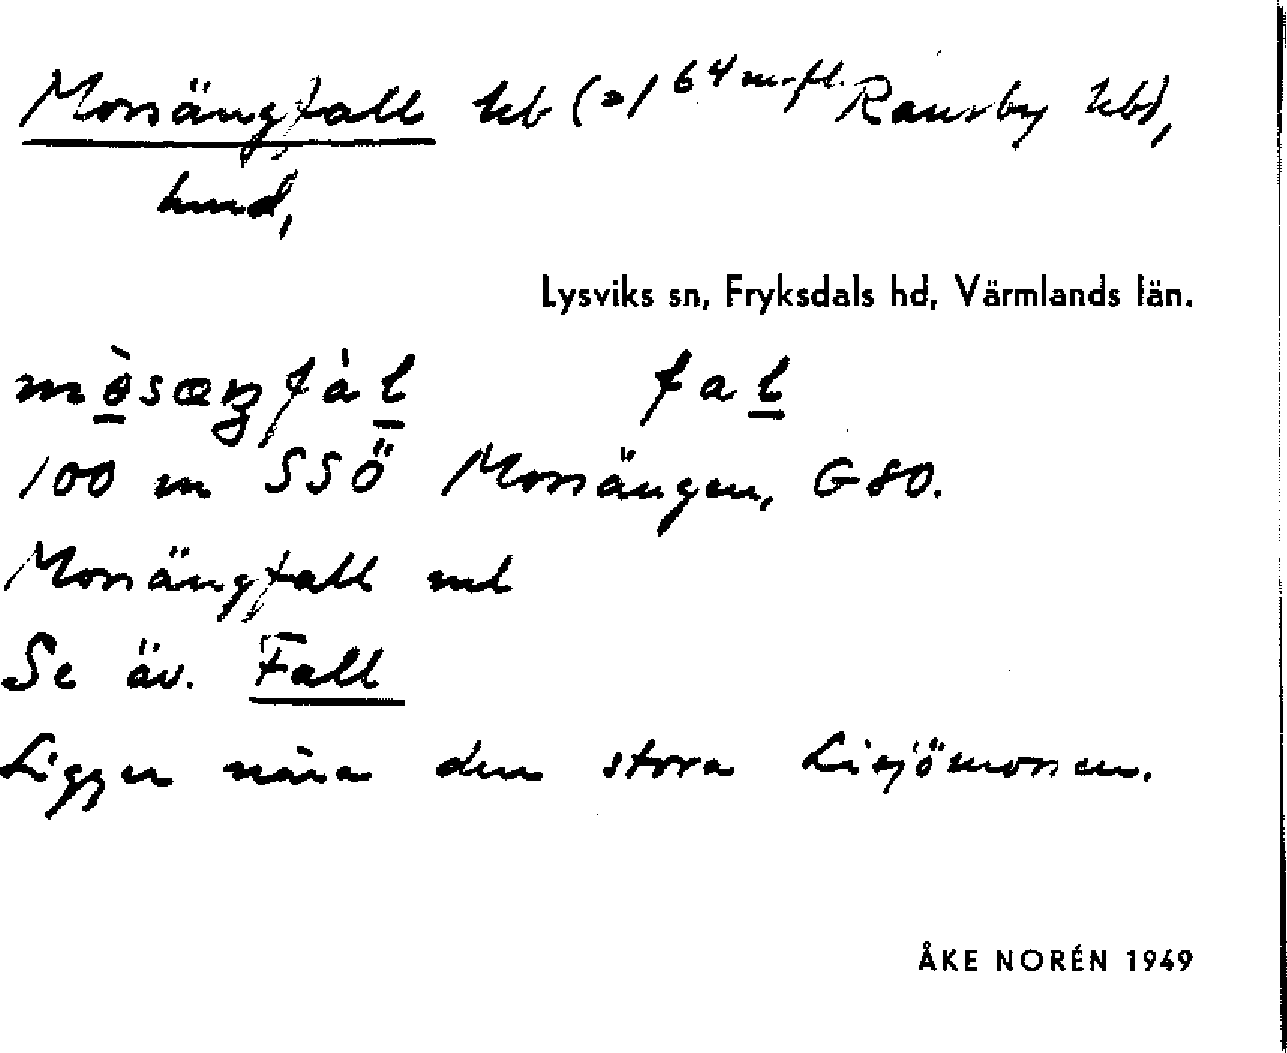 Morsängfall lht (=1⁶⁴ m.fl. Ransby lht),
hmd,
Lysviks sn, Fryksdals hd, Värmlands län.
fal
100 m SSÖ Morsängen, G80.
Morsängfall
Se äv. Fall
Ligger nära den stora Lisjömossen.
ÅKE NORÉN 1949